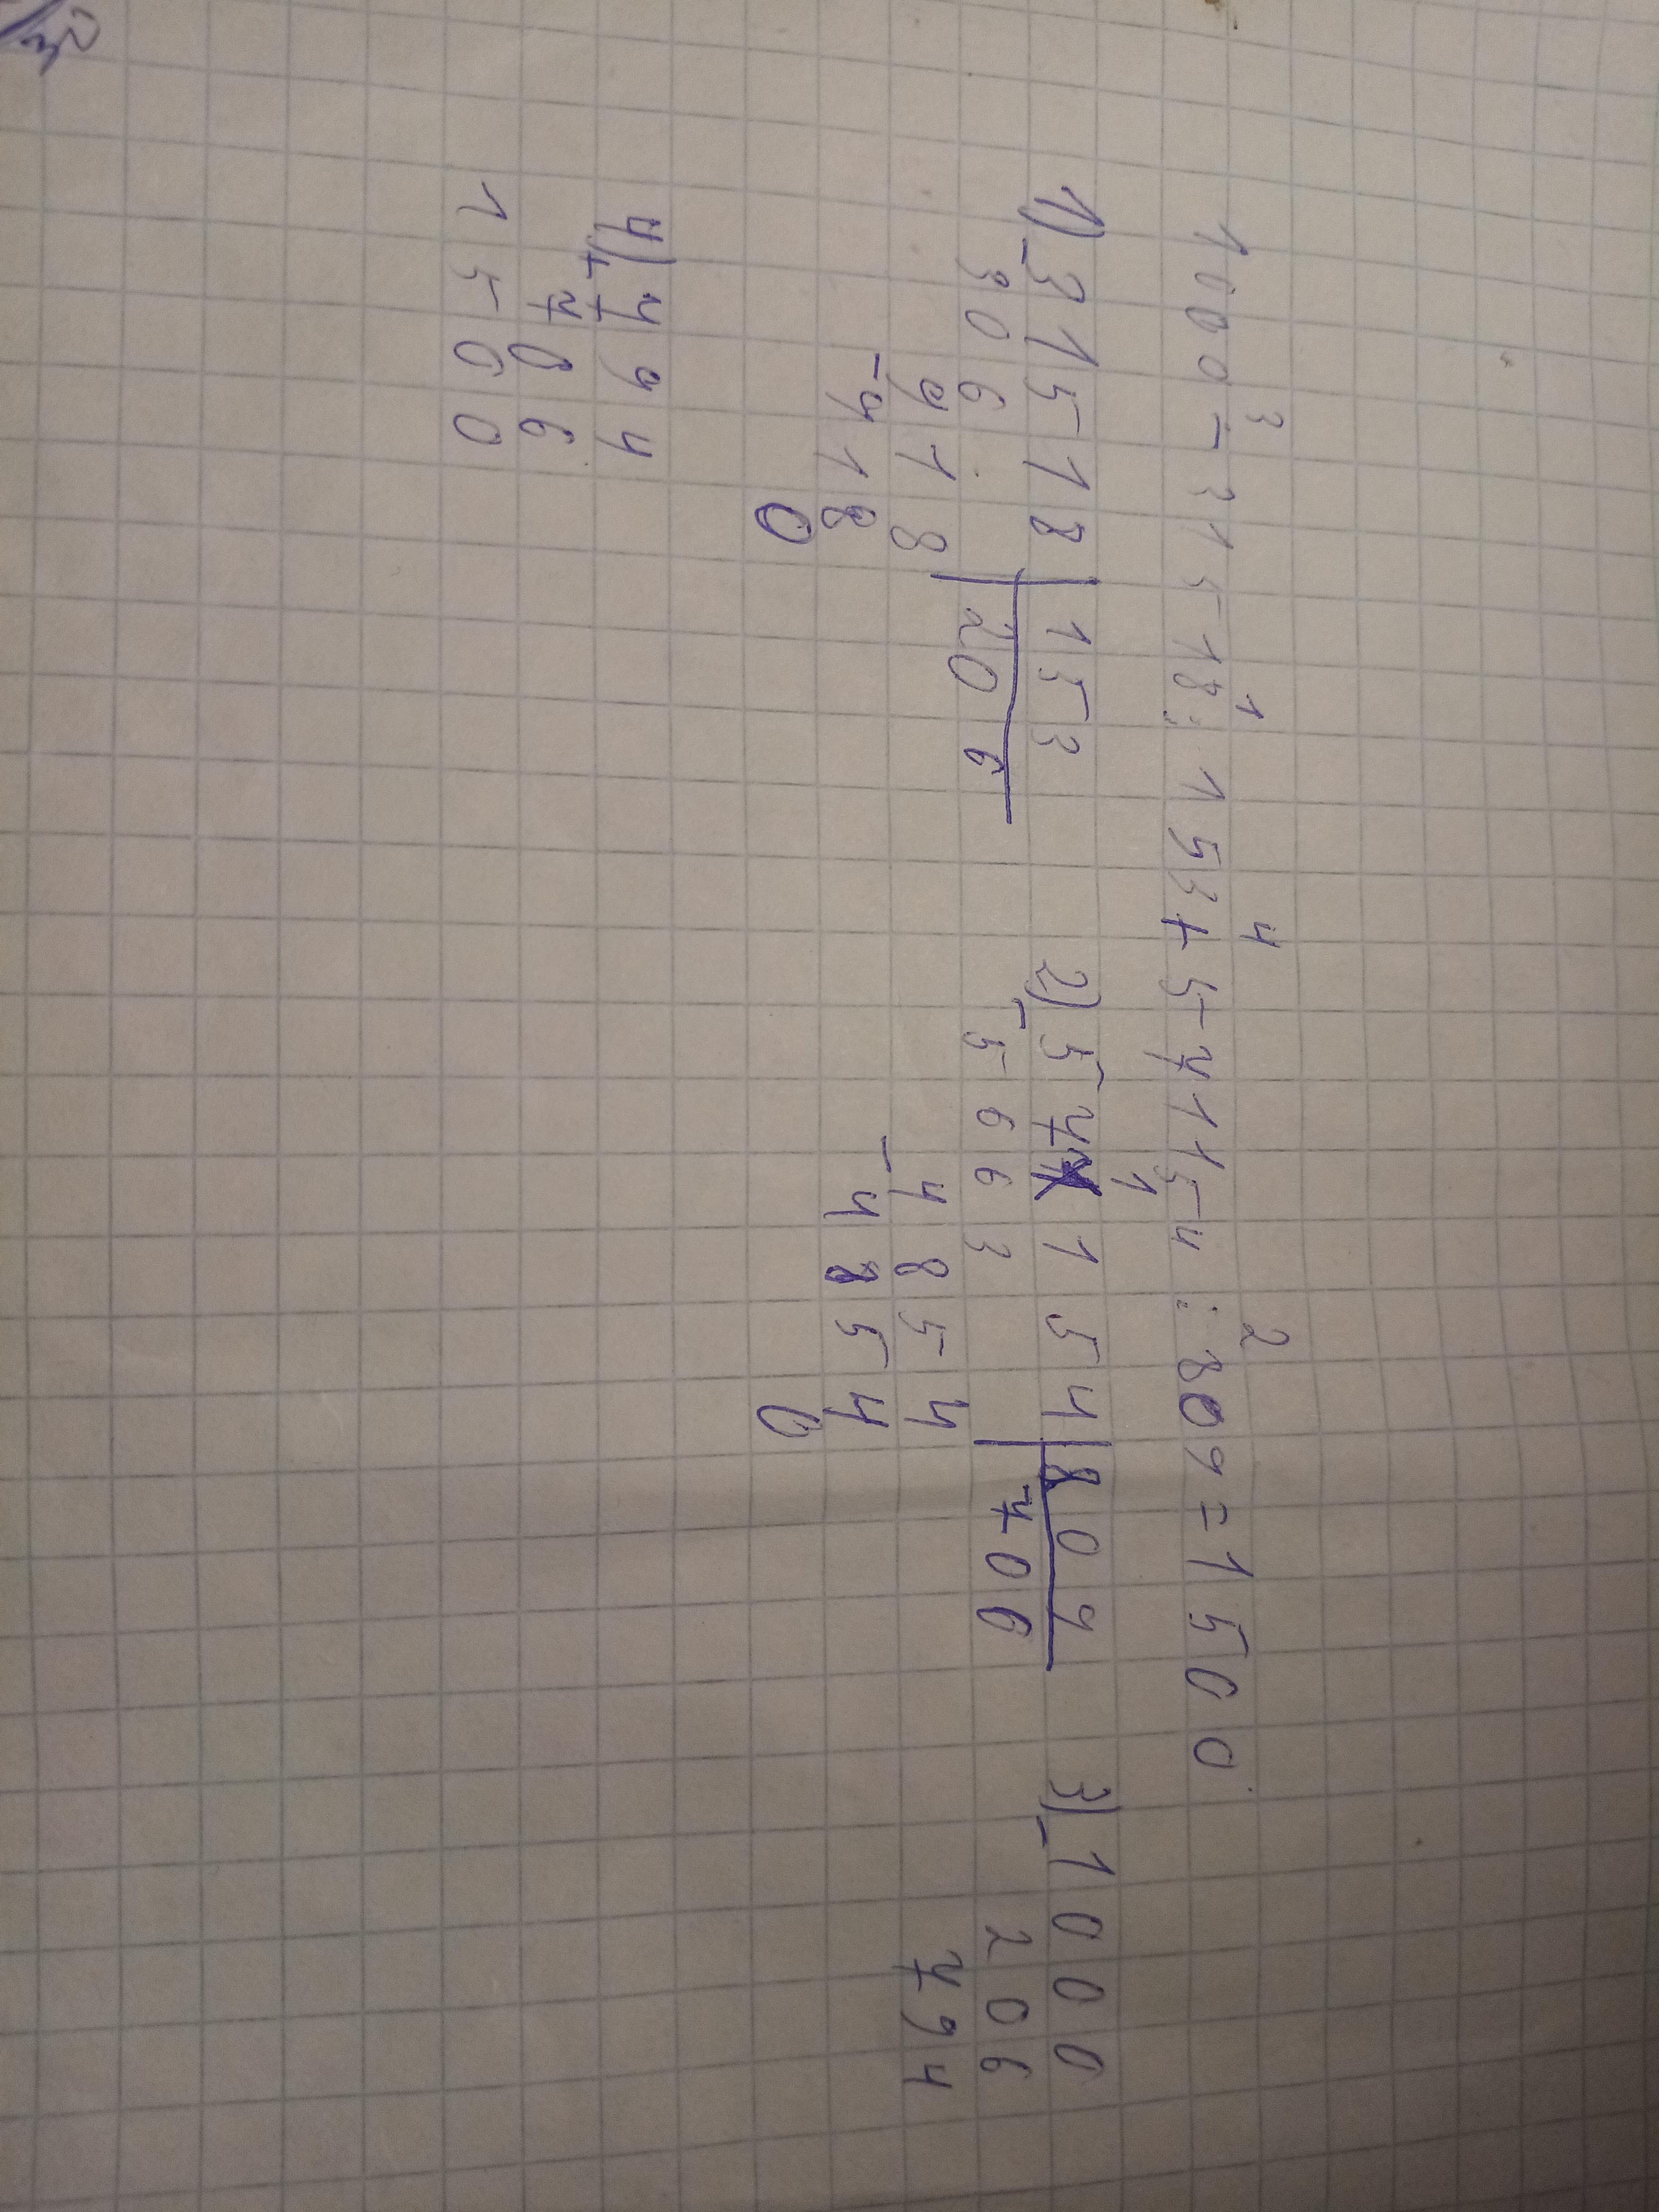 3 1 4 2
1000-31518:153+571154:809=1500
1) 31518 | 153 2) 571154 | 809 3) 1000
306 206 5663 706 206
918 4854 794
918 4854
0 0
4) 794
+ 706
1500